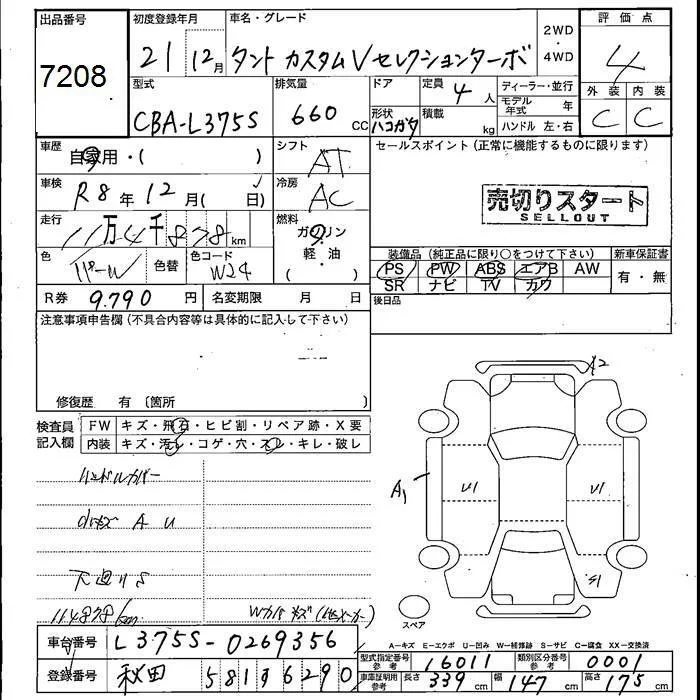 出品番号
7208
初度登録年月
21年12月
車名・グレード
タント カスタムVセレクションターボ
2WD
・
4WD
評価点
4
外装 内装
C C
型式
CBA-L375S
排気量
660 CC
ドア
形状
ハコガタ
定員
4人
積載
kg
ディーラー・並行
モデル年式 年
ハンドル 左・右
車歴
自家用・( )
シフト
AT
セールスポイント (正常に機能するものに限ります)
車検
R8年12月( 日)
冷房
AC
売切りスタート
SELLOUT
走行
11万4千878km
燃料
ガソリン
・
軽・油
( )
色
パール
色替
色コード
W24
装備品 (純正品に限り○をつけて下さい)
新車保証書
PS PW ABS エアB AW
SR ナビ TV カワ
有・無
R券 9.790円
名変期限 月 日
後日品
注意事項申告欄 (不具合内容等は具体的に記入して下さい)
修復歴 有 〔箇所 〕
検査員記入欄
FW キズ・飛石・ヒビ割・リペア跡・X要
内装 キズ・汚レ・コゲ・穴・スレ・キレ・破レ
ハンドルカバー
A U
下廻りS
114878km
Wカバーキズ
A2
A1
U1
U1
S1
スペア
車台番号 L375S-0269356
登録番号 秋田 581 6290
A-キズ E-エクボ U-凹み W-補修跡 S-サビ C-腐食 XX-交換済
型式指定番号 参考 16011
類別区分番号 参考 0001
車庫証明用 参考 長さ 339cm 幅 147cm 高さ 175cm